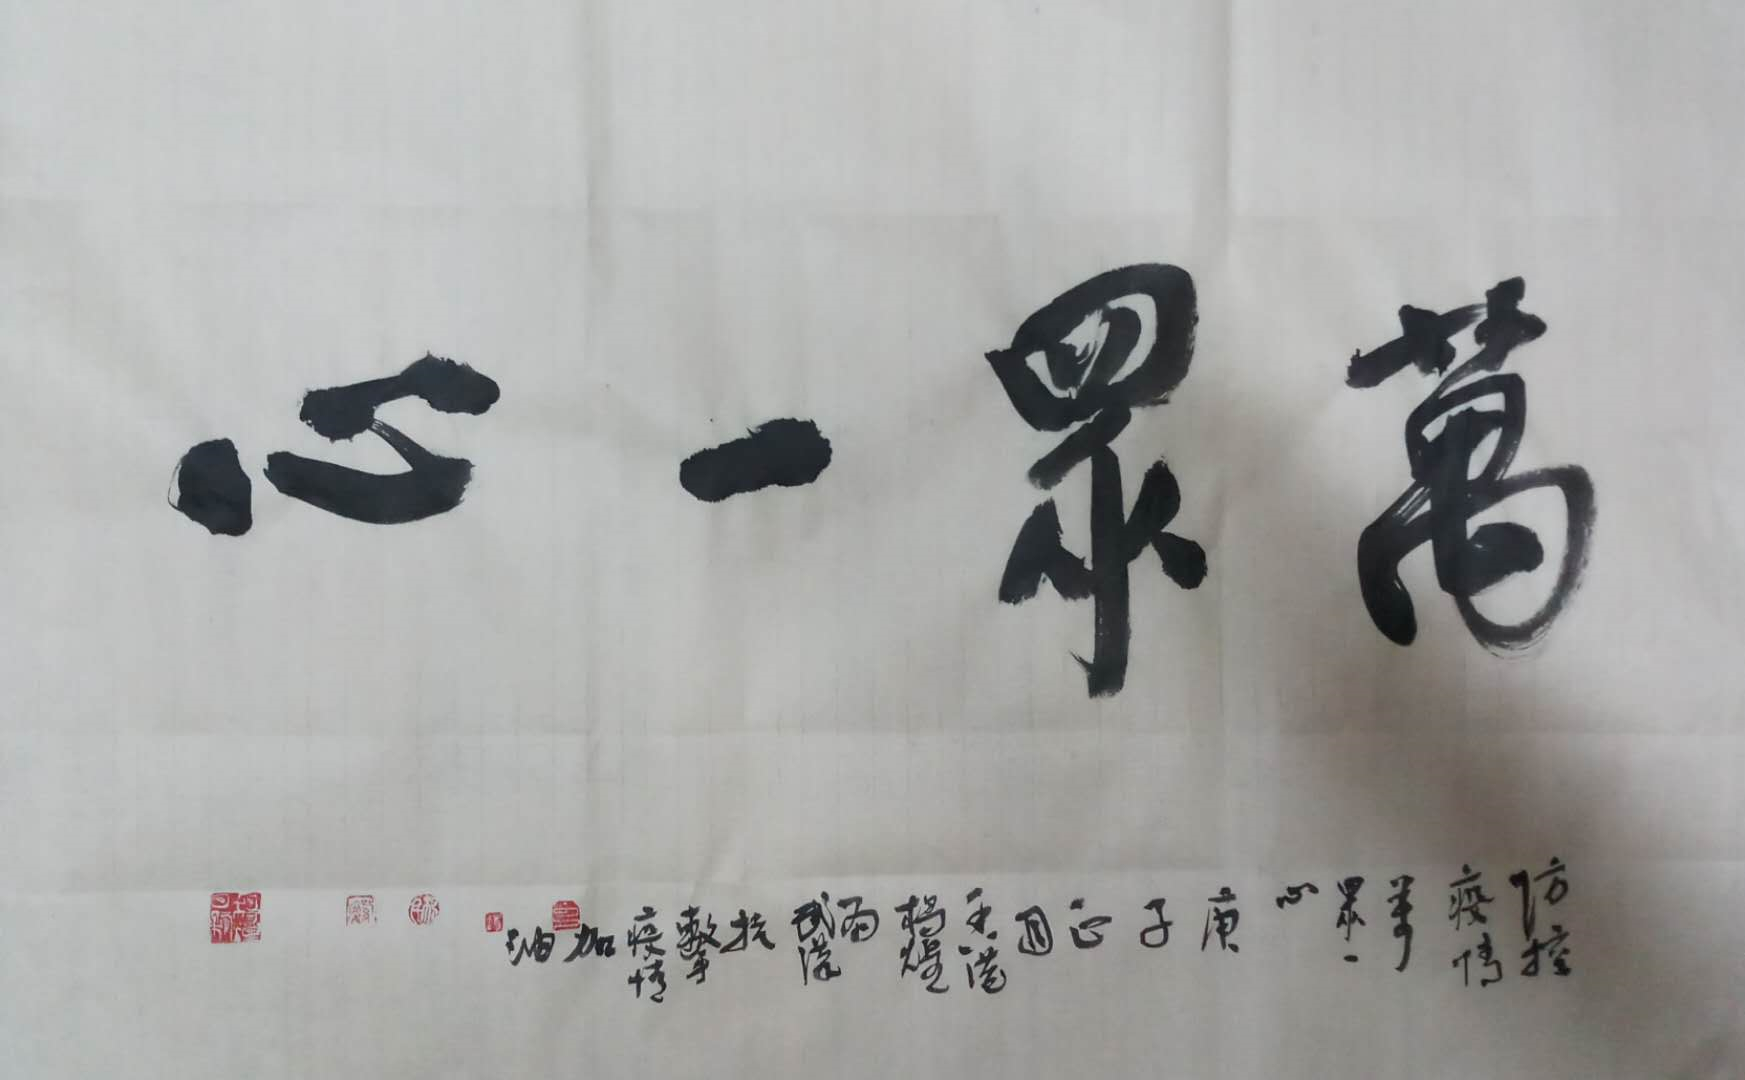 萬眾一心
防控
疫情
萬
眾一
心
庚
子
正
月
香港
楊耀
為
武漢
抗
擊
疫情
加
油